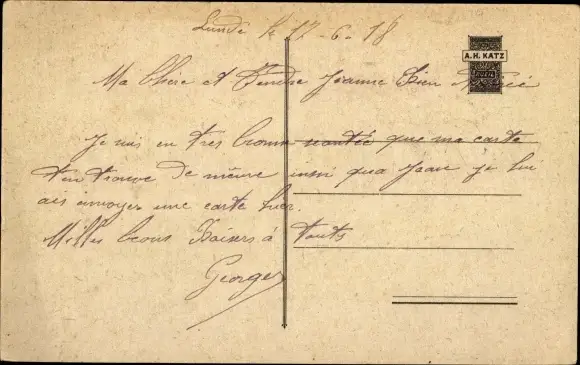 Lundi le 17-6-18
A.H. KATZ
Ma Chère et Tendre Jeanne Bien
Je suis en très bonne santée que ma carte
t'en trouve de même insi qua Jean je lui
ais envoyer une carte hier.
Milles bons Baisers à touts
Georges